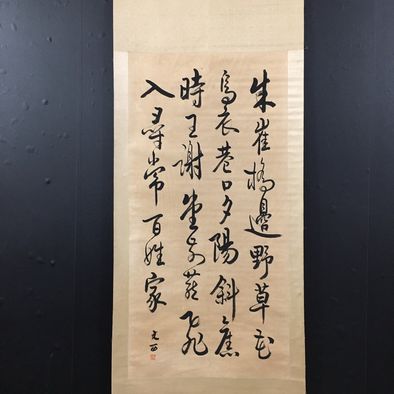 朱雀橋邊野草花
烏衣巷口夕陽斜舊
時王謝堂前燕飛
入尋常百姓家